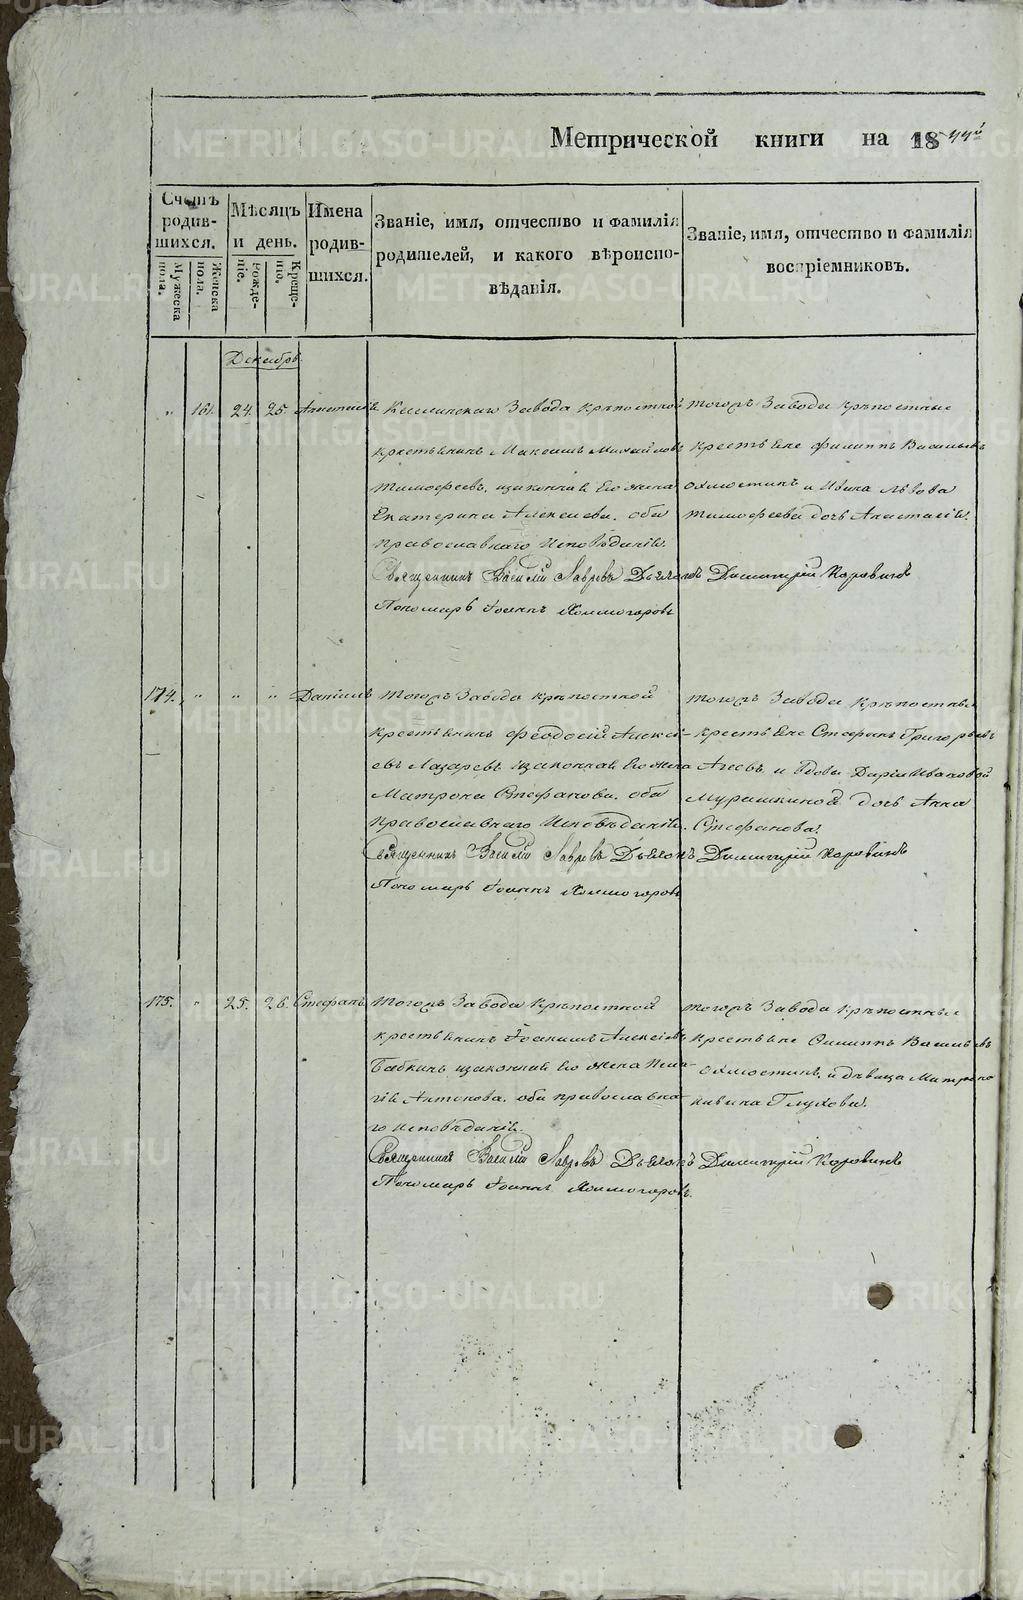 Метрической книги на 1844й
Счетъ родившихся.
Мужеска пола.
Женска пола.
Мѣсяцъ и день.
Рожденіе.
Крещеніе.
Имена родившихся.
Званіе, имя, отчество и фамилія
родителей, и какого вѣроиспо-
вѣданія.
Званіе, имя, отчество и фамилія
воспріемниковъ.
Декабрь
" 161. 24. 25. Анастасія
Каслинскаго Завода Крѣпостной
крестьянинъ Максимъ Михайловъ
Тимофеевъ, изаконная Его жена
Екатерина Алексѣева. оба
православнаго Исповѣданія.
Священникъ Василій Лавровъ Дьяконъ Димитрій Коровинъ
Пономарь Іоаннъ Холмогоровъ
тогожъ Завода крѣпостные
Крестьяне Филиппъ Васильевъ
Ахлюстинъ и Ивана Львова
Тимофеева дочь Анастасія.
174. " " " Даніилъ
Тогожъ Завода крѣпостной
крестьянинъ Феодосій Алексѣ-
евъ Лазаревъ изаконная Его жена
Матрона Стефанова. оба
Православнаго Исповѣданія.
Священникъ Василій Лавровъ Дьяконъ Димитрій Коровинъ
Пономарь Іоаннъ Холмогоровъ
тогожъ Завода Крѣпостные
крестьяне Стефанъ Григорьевъ
Агеевъ и вдовы Даріи Ивановой
Мурашкиной дочь Анна
Стефанова.
175. " 25. 26. Стефанъ
Тогожъ Завода Крѣпостной
крестьянинъ Іоакимъ Алексѣевъ
Бабкинъ изаконная Его жена Пела-
гія Антонова. оба православна-
го Исповѣданія.
Священникъ Василій Лавровъ Дьяконъ Димитрій Коровинъ
Пономарь Іоаннъ Холмогоровъ.
тогожъ Завода Крѣпостные
Крестьяне Филиппъ Васильевъ
Ахлюстинъ. и дѣвица Матрона
Глухова.
METRIKI.GASO-URAL.RU